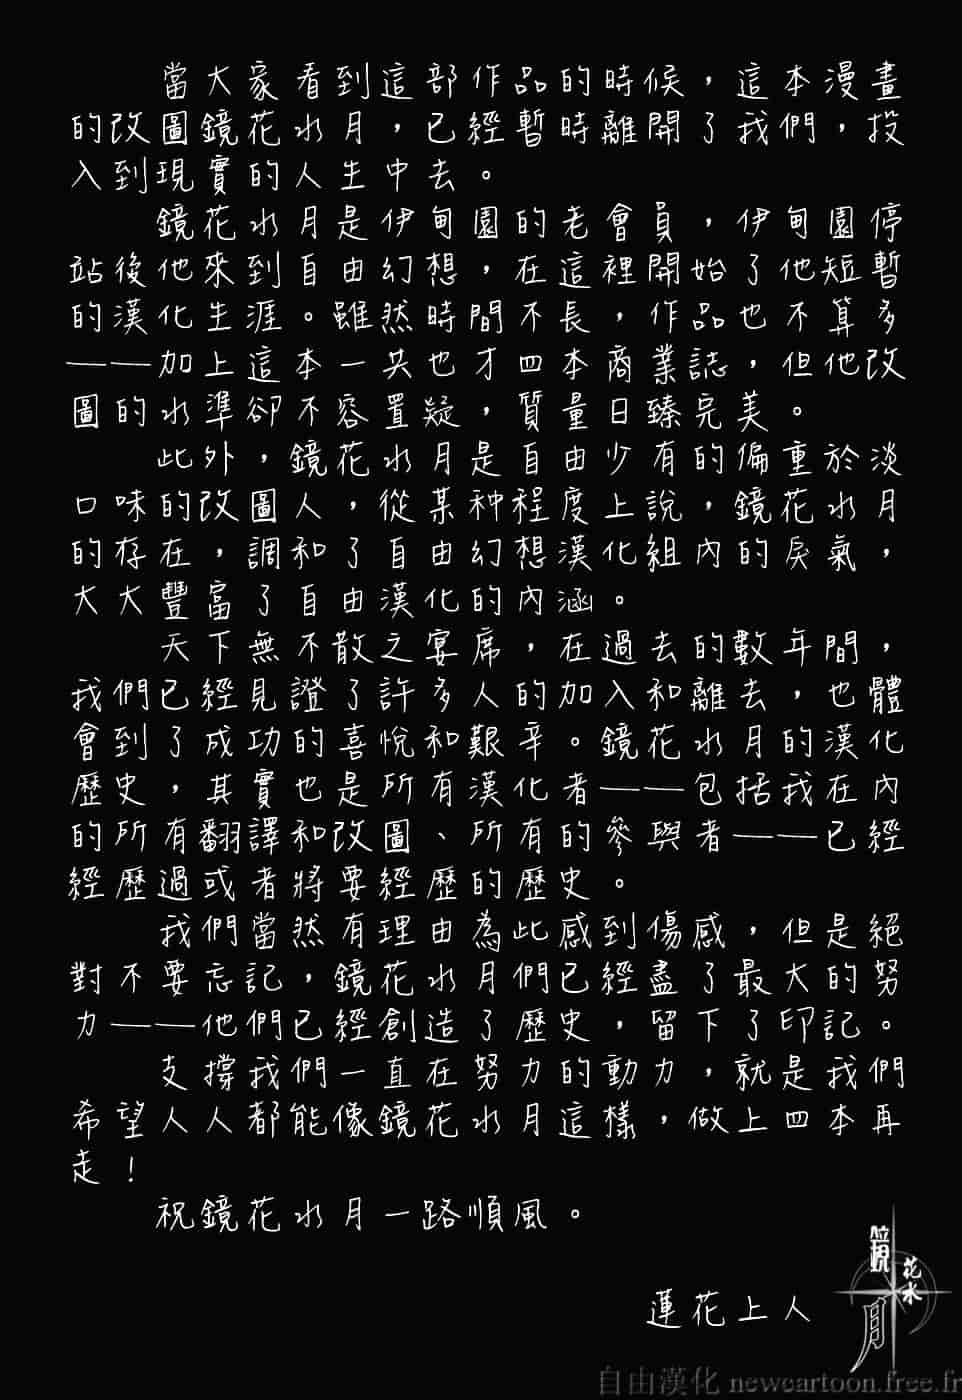 當大家看到這部作品的時候，這本漫畫
的改圖鏡花水月，已經暫時離開了我們，投
入到現實的人生中去。
鏡花水月是伊甸園的老會員，伊甸園停
站後他來到自由幻想，在這裡開始了他短暫
的漢化生涯。雖然時間不長，作品也不算多
——加上這本一共也才四本商業誌，但他改
圖的水準卻不容置疑，質量日臻完美。
此外，鏡花水月是自由少有的偏重於淡
口味的改圖人，從某种程度上說，鏡花水月
的存在，調和了自由幻想漢化組內的戾氣，
大大豐富了自由漢化的內涵。
天下無不散之宴席，在過去的數年間，
我們已經見證了許多人的加入和離去，也體
會到了成功的喜悅和艱辛。鏡花水月的漢化
歷史，其實也是所有漢化者——包括我在內
的所有翻譯和改圖、所有的參與者——已經
經歷過或者將要經歷的歷史。
我們當然有理由為此感到傷感，但是絕
對不要忘記，鏡花水月們已經盡了最大的努
力——他們已經創造了歷史，留下了印記。
支撐我們一直在努力的動力，就是我們
希望人人都能像鏡花水月這樣，做上四本再
走！
祝鏡花水月一路順風。
蓮花上人
鏡花水月
自由漢化 newcartoon.free.fr